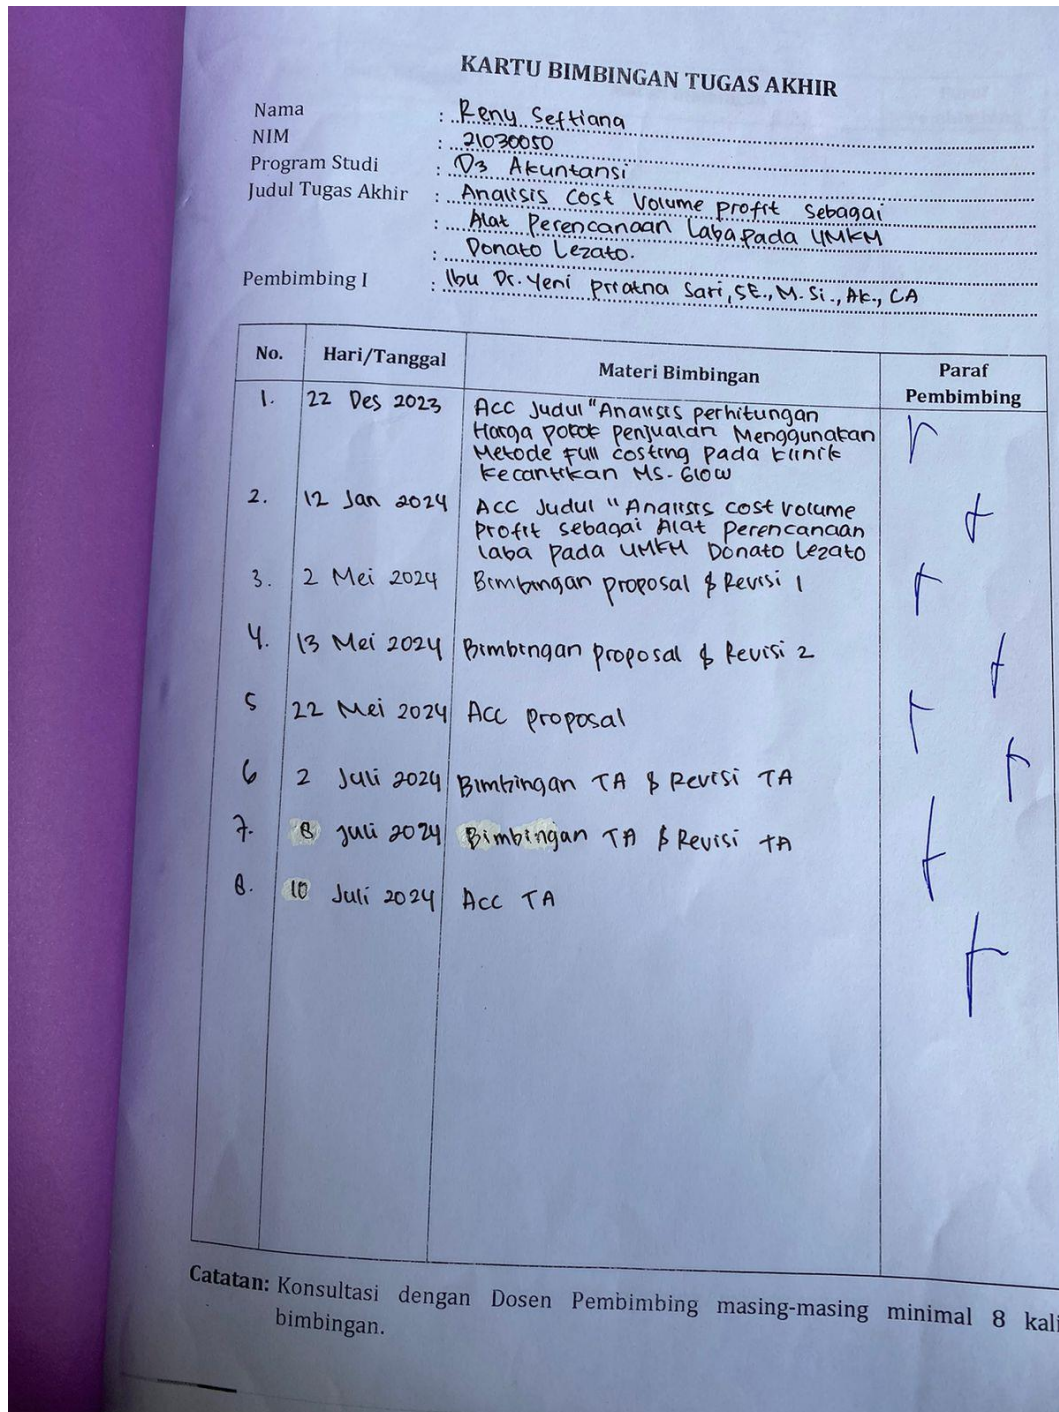 KARTU BIMBINGAN TUGAS AKHIR
Nama : Reny Seftiana
NIM : 21030050
Program Studi : D3 Akuntansi
Judul Tugas Akhir : Analisis Cost Volume profit sebagai
: Alat Perencanaan Laba pada UMKM
: Donato Lezato.
Pembimbing I : Ibu Dr. Yeni priatna Sari, SE., M. Si., Ak., CA
No. Hari/Tanggal Materi Bimbingan Paraf Pembimbing
1. 22 Des 2023 Acc Judul "Analisis perhitungan
Harga pokok penjualan Menggunakan
Metode Full costing pada klinik
kecantikan MS-Glow
2. 12 Jan 2024 Acc Judul "Analisis cost volume
Profit sebagai Alat perencanaan
laba pada UMKM Donato Lezato
3. 2 Mei 2024 Bimbingan proposal & Revisi 1
4. 13 Mei 2024 Bimbingan proposal & Revisi 2
5 22 Mei 2024 Acc proposal
6 2 Juli 2024 Bimbingan TA & Revisi TA
7. 8 Juli 2024 Bimbingan TA & Revisi TA
8. 10 Juli 2024 Acc TA
Catatan: Konsultasi dengan Dosen Pembimbing masing-masing minimal 8 kali
bimbingan.